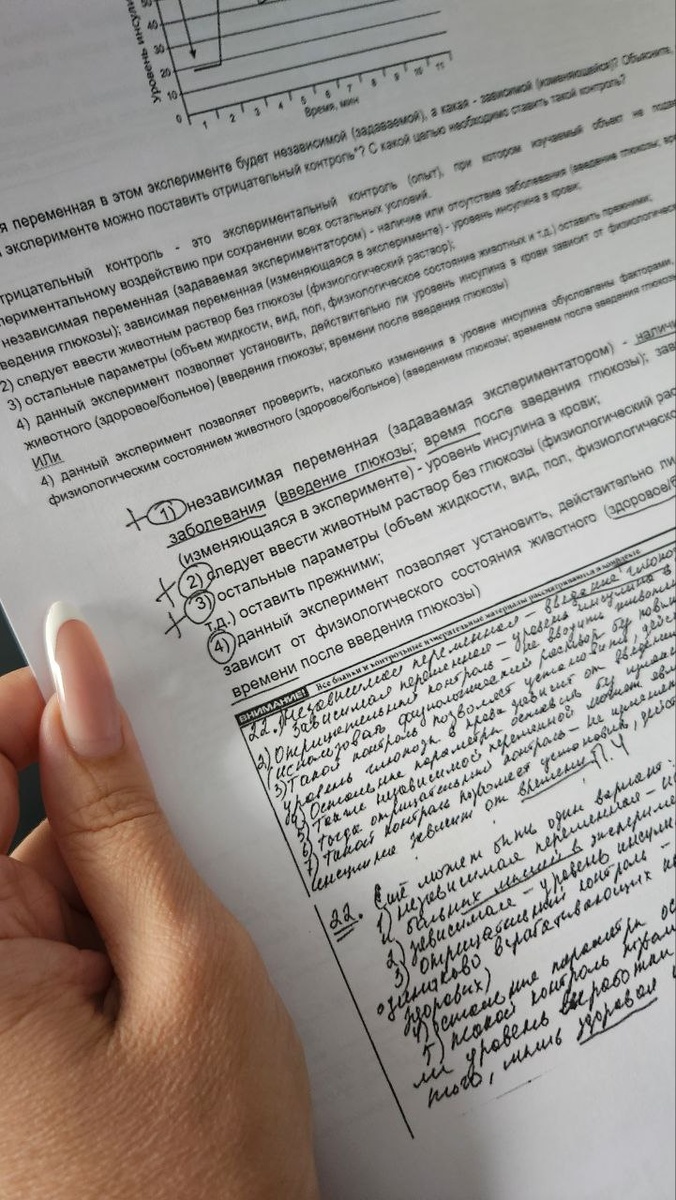 Уровень инсули
50
40
30
20
10
0
1 2 3 4 5 6 7 8 9 10 11
Время, мин
я переменная в этом эксперименте будет независимой (задаваемой), а какая - зависимой (изменяющейся)? Объясните,
эксперименте можно поставить отрицательный контроль*? С какой целью необходимо ставить такой контроль?
трицательный контроль - это экспериментальный контроль (опыт), при котором изучаемый объект не подве
периментальному воздействию при сохранении всех остальных условий.
независимая переменная (задаваемая экспериментатором) - наличие или отсутствие заболевания (введение глюкозы; вр
ведения глюкозы); зависимая переменная (изменяющаяся в эксперименте) - уровень инсулина в крови;
2) следует ввести животным раствор без глюкозы (физиологический раствор);
3) остальные параметры (объем жидкости, вид, пол, физиологическое состояние животных и т.д.) оставить прежними;
4) данный эксперимент позволяет установить, действительно ли уровень инсулина в крови зависит от физиологическо
животного (здоровое/больное) (введения глюкозы; времени после введения глюкозы)
ИЛИ
4) данный эксперимент позволяет проверить, насколько изменения в уровне инсулина обусловлены факторами,
физиологическим состоянием животного (здоровое/больное) (введением глюкозы; временем после введения глюкозы
+ 1) независимая переменная (задаваемая экспериментатором) - налич
заболевания (введение глюкозы; время после введения глюкозы); зав
(изменяющаяся в эксперименте) - уровень инсулина в крови;
+ 2) следует ввести животным раствор без глюкозы (физиологический рас
+ 3) остальные параметры (объем жидкости, вид, пол, физиологическо
т.д.) оставить прежними;
4) данный эксперимент позволяет установить, действительно ли
зависит от физиологического состояния животного (здоровое/б
времени после введения глюкозы)
ВНИМАНИЕ! Все бланки и контрольные измерительные материалы рассматриваются в комплекте
22. 1) Независимая переменная - введение глюкоз
зависимая переменная - уровень инсулина в
2) Отрицательный контроль - не вводить животны
(использовать физиологический раствор
3) Такой контроль позволяет установить, дейст
уровень глюкозы в крови зависит от введени
4) Остальные параметры оставить
5) Также независимой переменной может явл
6) Тогда отрицательный контроль - не изменя
7) Такой контроль позволяет установить, дейст
инсулина зависит от времени П.Ч
22. Ещё может быть один вариант:
1) независимая переменная -
больных мышей в эксперим
2) зависимая - уровень инсули
3) отрицательный контроль -
одинаково
здоровых)
4) остальные параметры ос
5) такой контроль позво
ли уровень выработки
того, мышь здоровая